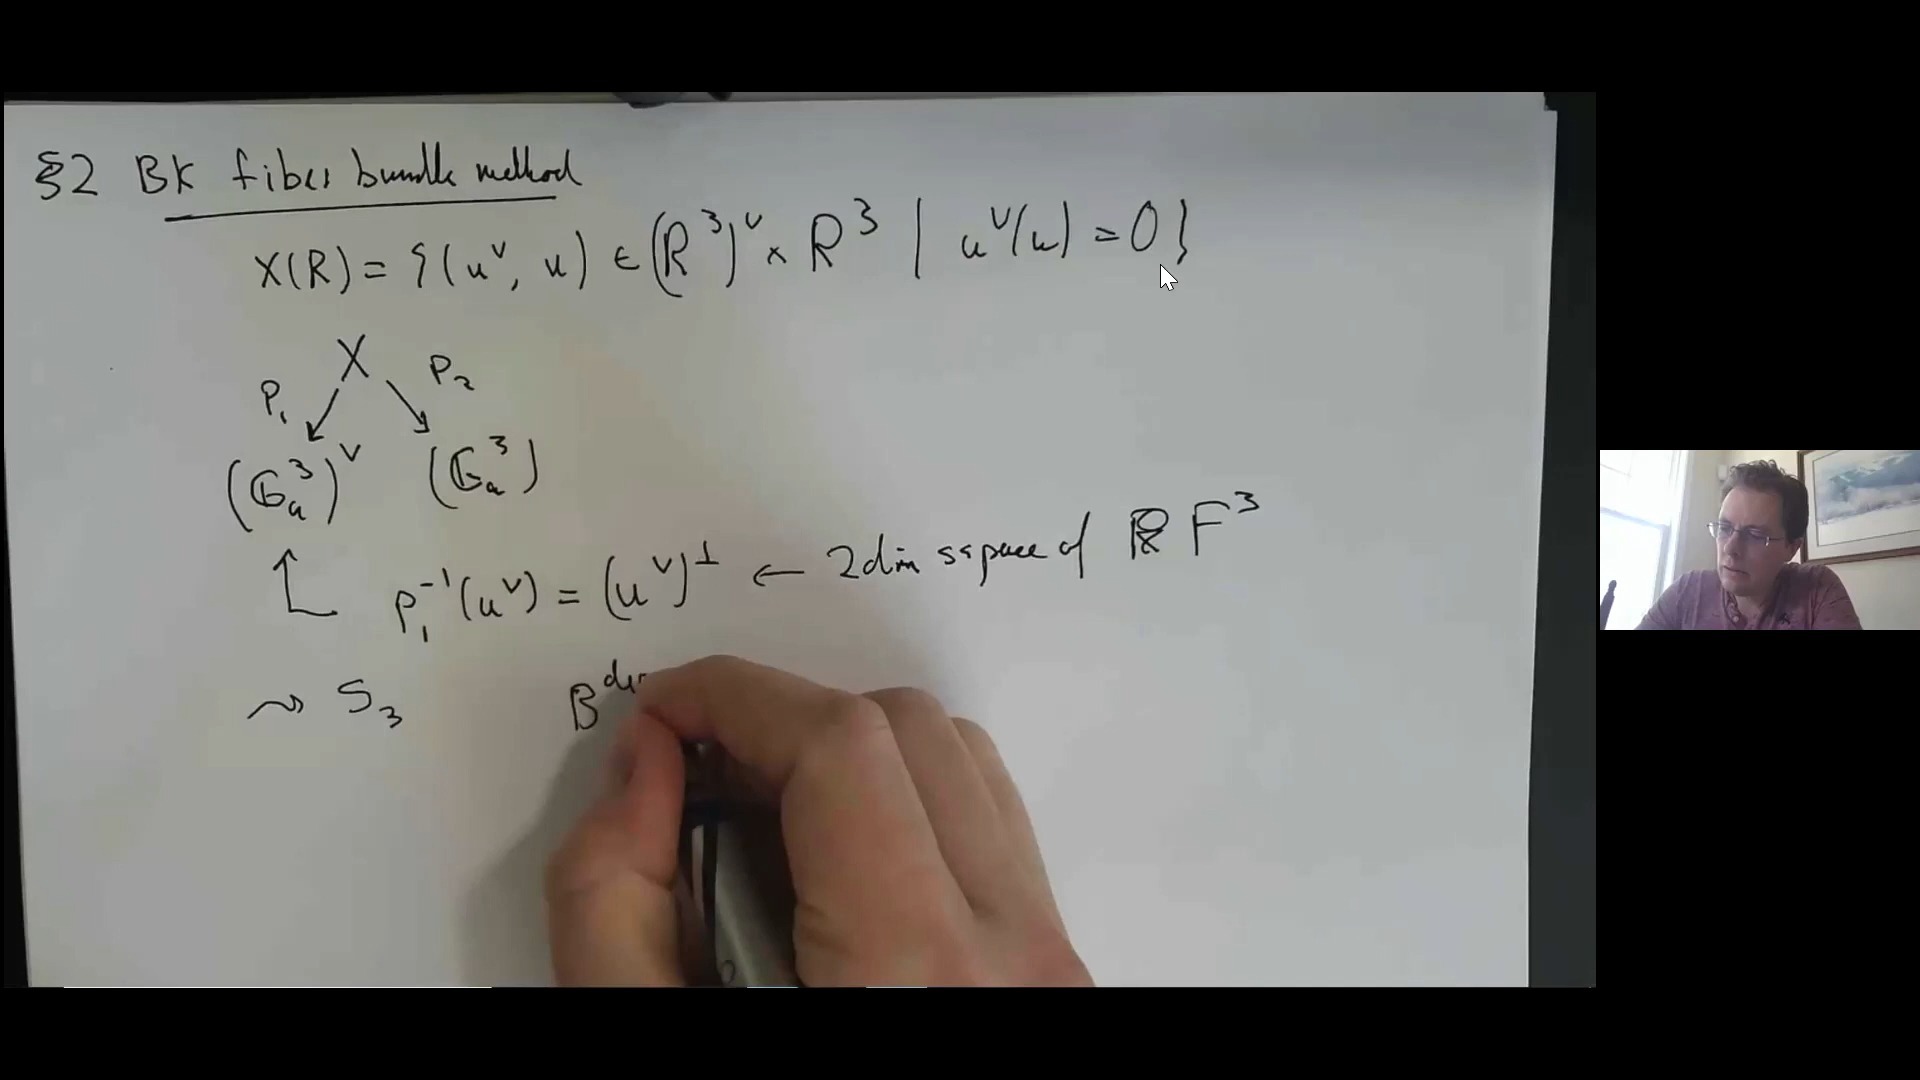 §2 BK fiber bundle method
X(R) = {(u^∨, u) ∈ (R^3)^∨ × R^3 | u^∨(u) = 0}
X
P_1 P_2
(𝔾_a^3)^∨ (𝔾_a^3)
P_1^{-1}(u^∨) = (u^∨)^⊥ ← 2dim sspace of F^3
⇝ S_3 B^der